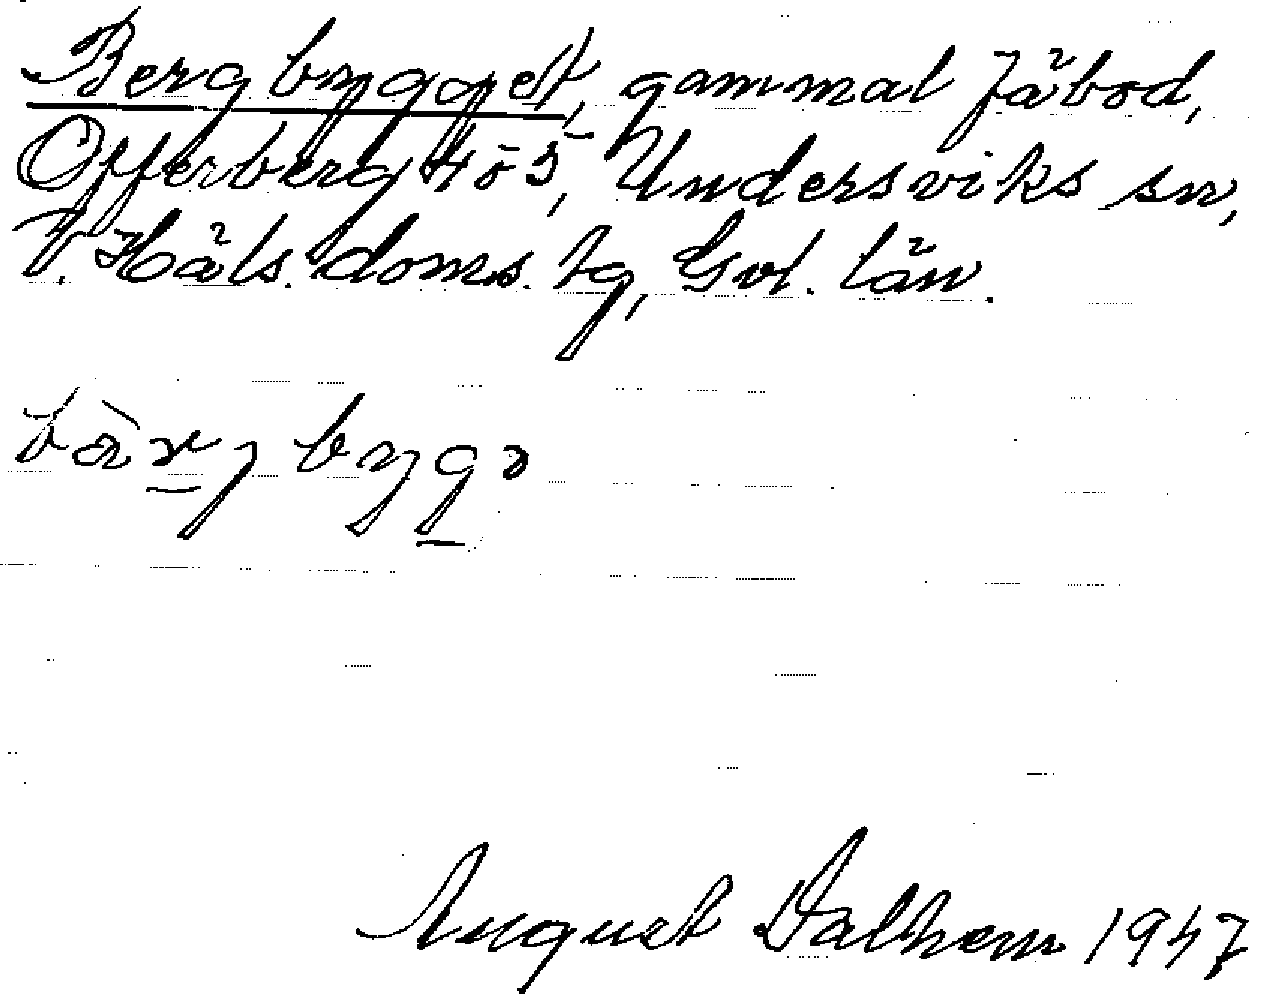 Bergbygget, gammal fäbod,
Offerberg 4 ö 5, Undersviks sn,
V. Häls. doms. tg, Gvl. län.
bàrjbygə
August Dalhem 1947